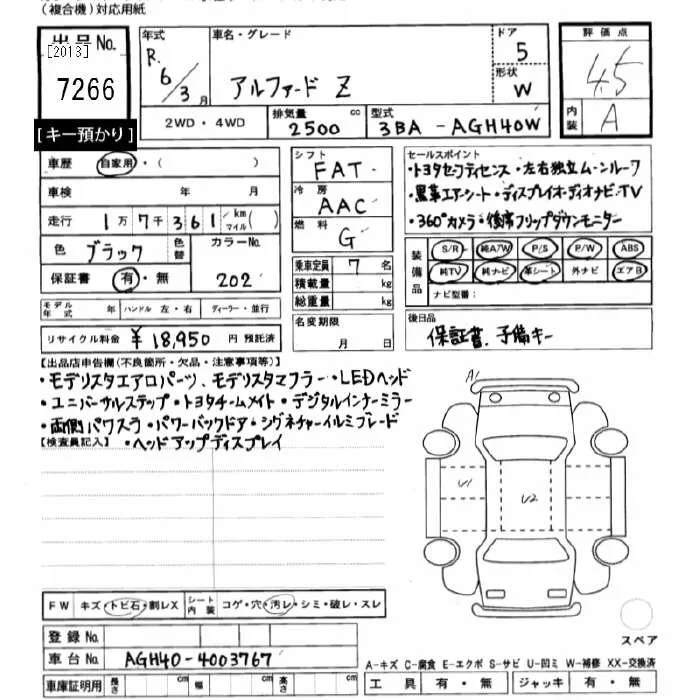 (複合機)対応用紙
出品No.
[2013]
7266
[キー預かり]
年式
R. 6/3月
車名・グレード
アルファード Z
ドア
5
形状
W
評価点
4.5
内装
A
2WD・4WD
排気量
2500 cc
型式
3BA-AGH40W
車歴 自家用・( )
車検 年 月
走行 1万7千361 km マイル( )
色 ブラック 色替
カラーNo.
202
保証書 有・無
シフト
FAT
冷房
AAC
燃料
G
乗車定員 7名
積載量 kg
総重量 kg
セールスポイント
・トヨタセーフティセンス・左右独立ムーンルーフ
・黒革エアーシート・ディスプレイオーディオナビ・TV
・360°カメラ・後席フリップダウンモニター
装備品
S/R 純A/W P/S P/W ABS
純TV 純ナビ 革シート 外ナビ エアB
ナビ型番:
モデル年式 年 ハンドル 左・右 ディーラー・並行
リサイクル料金 ¥18,950円 預託済
名変期限
月 日
後日品
保証書、予備キー
【出品店申告欄(不良箇所・欠品・注意事項等)】
・モデリスタエアロパーツ、モデリスタマフラー・LEDヘッド
・ユニバーサルステップ・トヨタチームメイト・デジタルインナーミラー
・両側パワスラ・パワーバックドア・シグネチャーイルミブレード
【検査員記入】・ヘッドアップディスプレイ
A1
U1
U2
スペア
FW キズ・トビ石・割レX シート内装 コゲ・穴・汚レ・シミ・破レ・スレ
登録No.
車台No. AGH40-4003767
車庫証明用 長さ cm 幅 cm 高さ cm
A-キズ C-腐食 E-エクボ S-サビ U-凹ミ W-補修 XX-交換済
工具 有・無 ジャッキ 有・無